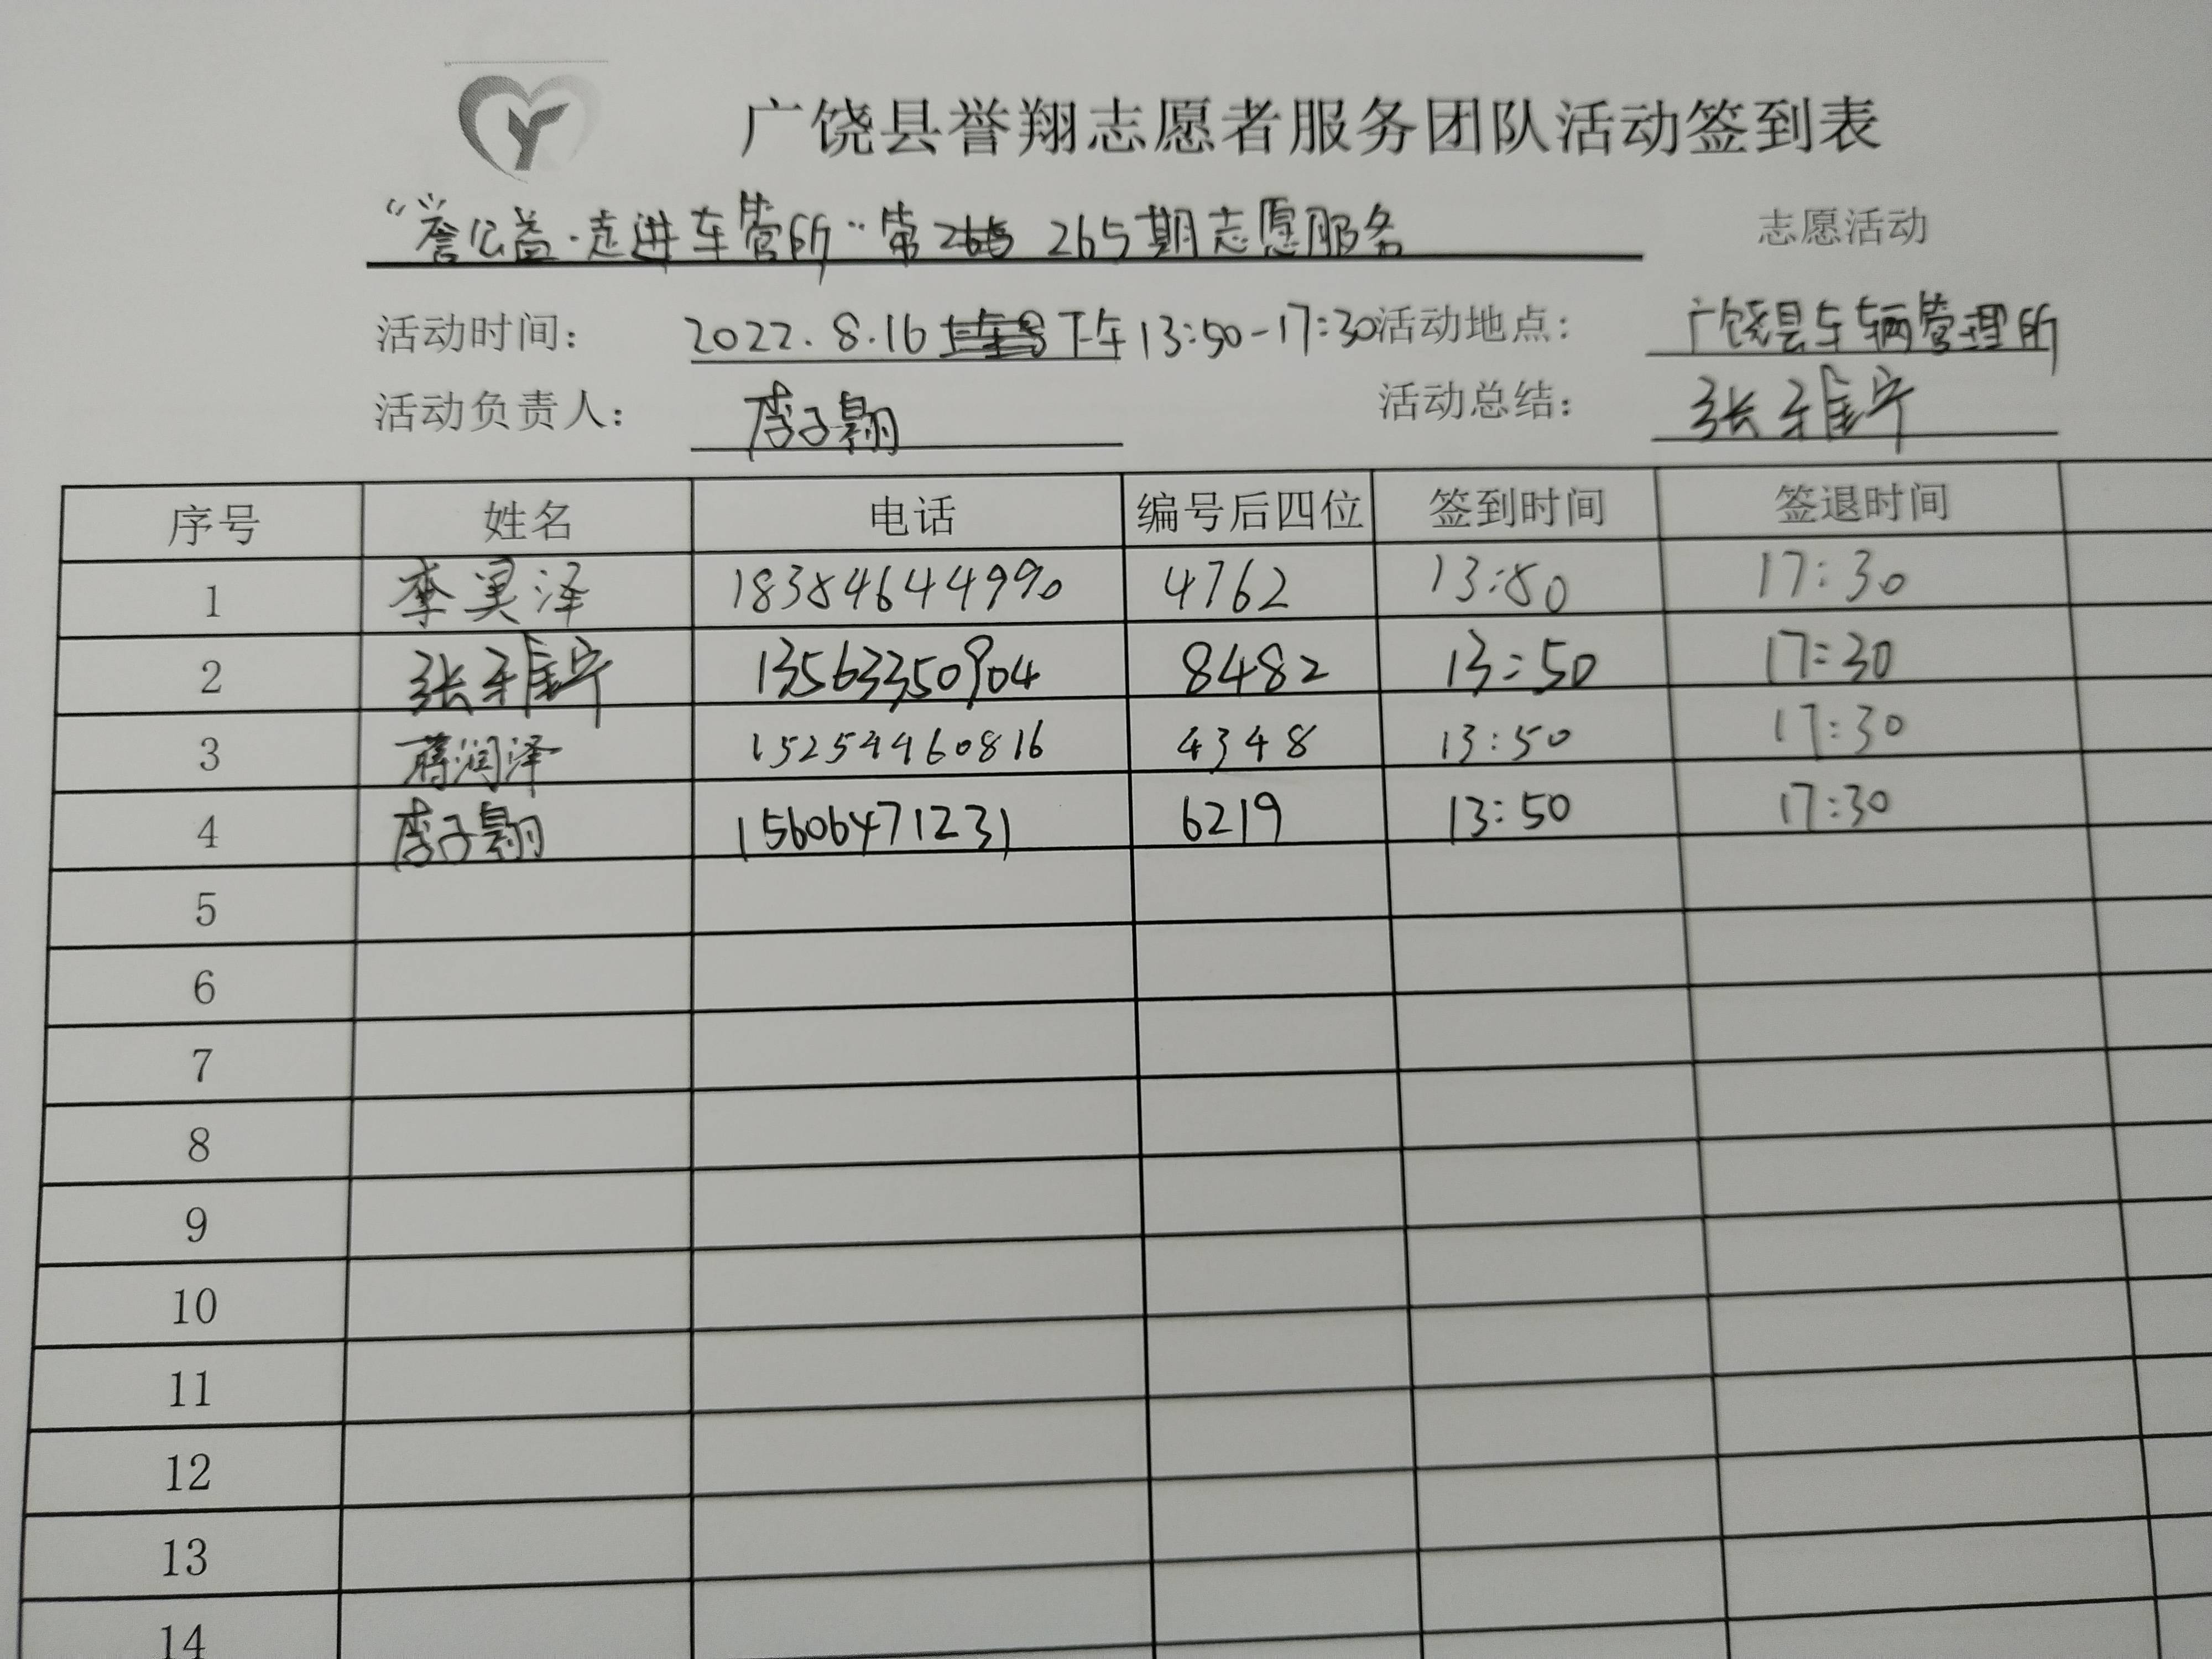 广饶县誉翔志愿者服务团队活动签到表
“誉公益·走进车管所”第 265期志愿服务 志愿活动
活动时间： 2022.8.16 下午13:50-17:30 活动地点： 广饶县车辆管理所
活动负责人： 李子翾 活动总结： 张雅宁
序号 姓名 电话 编号后四位 签到时间 签退时间
1 李昊泽 18384644990 4762 13:50 17:30
2 张雅宁 13563350904 8482 13:50 17:30
3 蒋润泽 15254460816 4348 13:50 17:30
4 李子翾 15606471231 6219 13:50 17:30
5
6
7
8
9
10
11
12
13
14